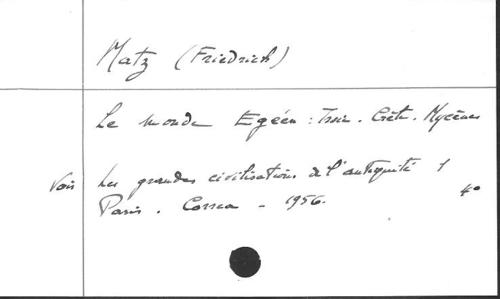 Matz (Friedrich)
Le monde Egéen : Troie. Crète. Mycènes
Voir Les grandes civilisations de l'antiquité 1
Paris. Correa - 1956. 4°